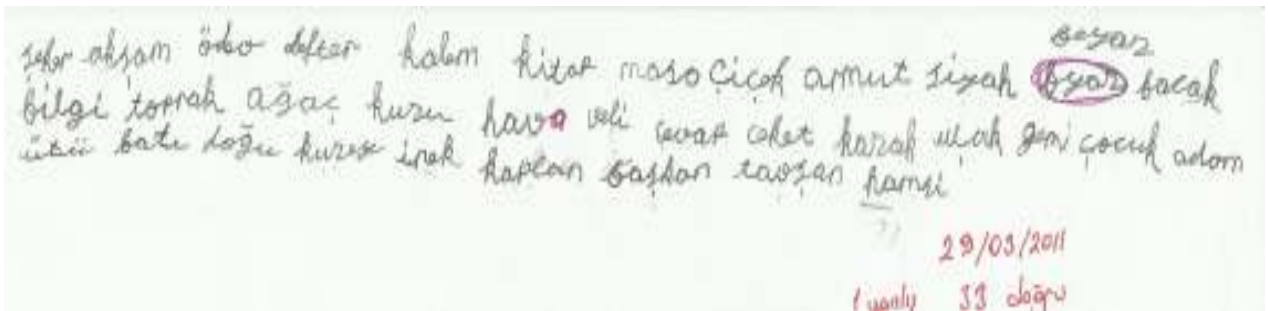 beyaz
şeker akşam ödev defter kalem kitap masa çiçek armut siyah byaz bacak
bilgi toprak ağaç kuzu hava veli cevap ceket kazak uçak gemi çocuk adam
ütü batı doğu kuzey inek kaplan başkan tavşan hamsi
29/03/2011
1 yanlış 33 doğru